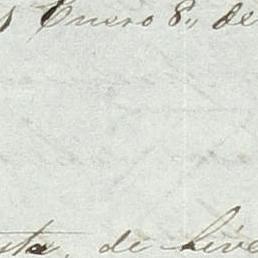 Enero 8,, de
de Live